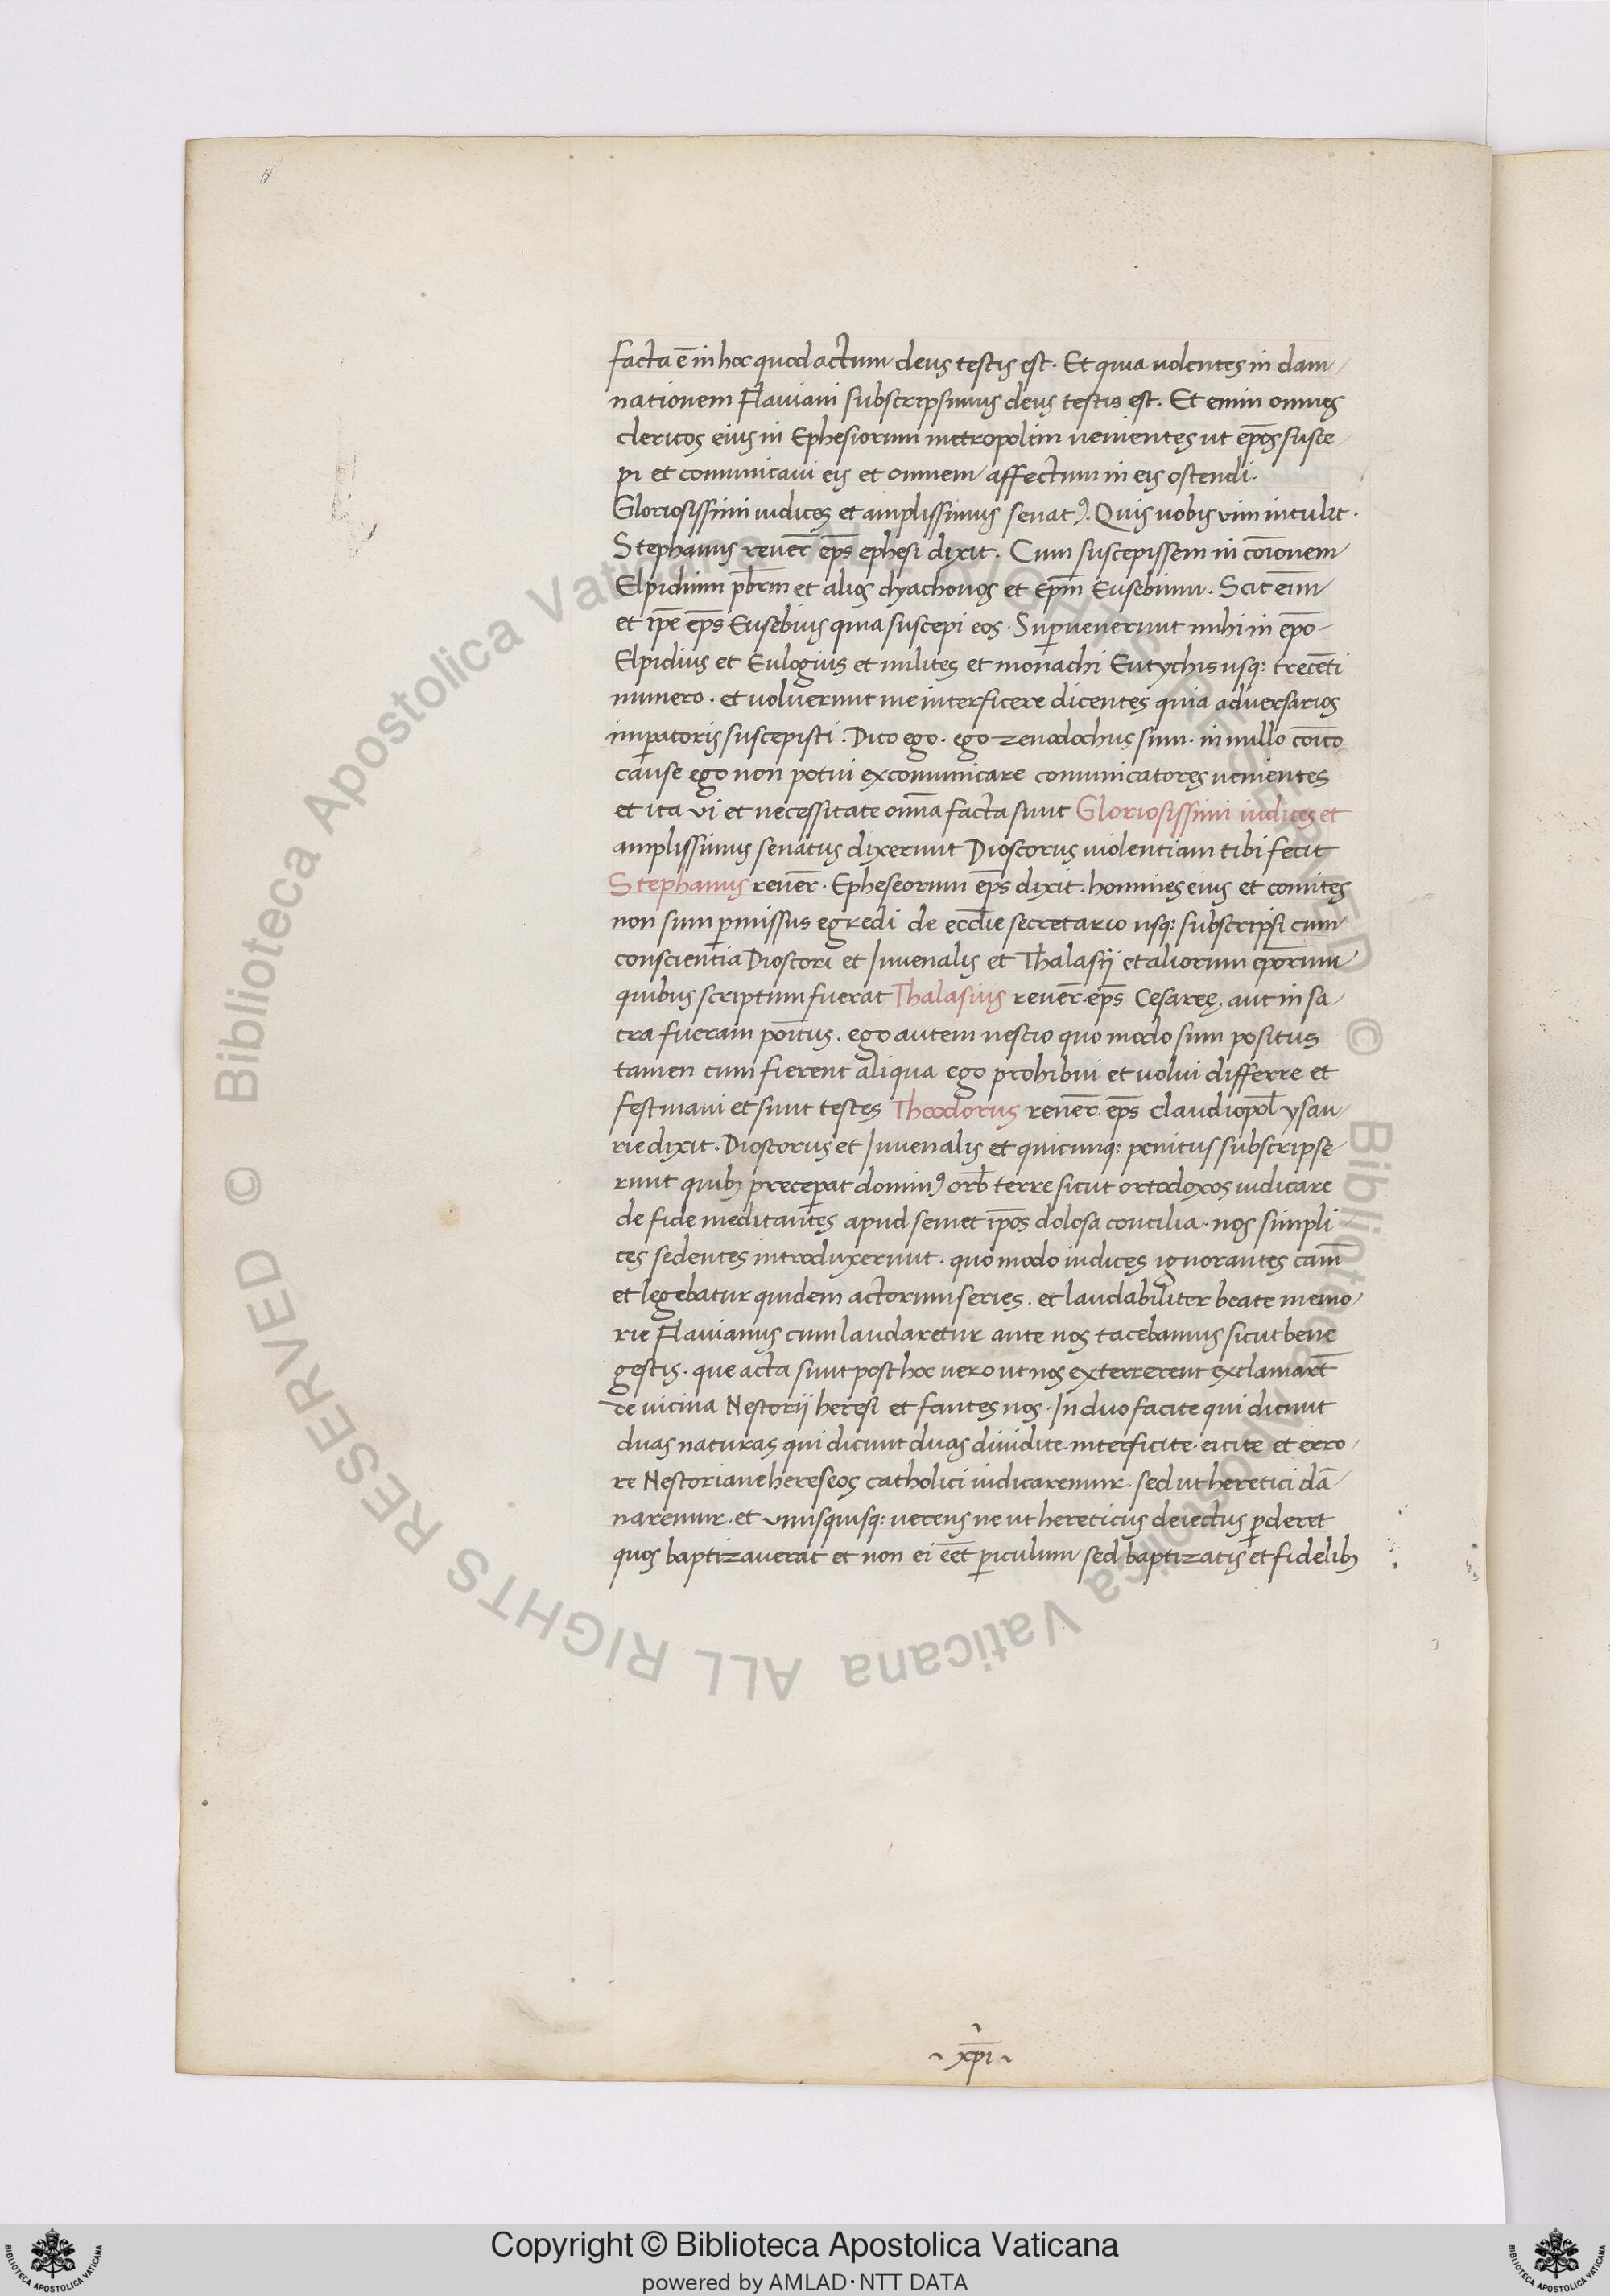 facta ē in hoc quod actum deus testis est. Et quia uolentes in dam
nationem Flauiani subscripsimus deus testis est. Et enim omnes
clericos eius in Ephesiorum metropolim uenientes ut ep̄os susce
pi et comunicaui eis et omnem affectum in eis ostendi.
Gloriosissimi iudices et amplissimus senatꝰ. Quis uobis vim intulit.
Stephanus reuer̄ ep̄s ephesi dixit. Cum suscepissem in cōionem
Elpidium pb̄rm et alios dyachonos et Ep̄m Eusebium. Scit eīm
et ip̄e ep̄s Eusebius quia suscepi eos. Suꝑuenerunt mihi in ep̄o
Elpidius et Eulogius et milites et monachi Eutychis usq: trecēti
numero. et uoluerunt me interficere dicentes quia aduersarios
imꝑatoris suscepisti. Dico ego. ego zenodochus sum. in nullo cōico
cause ego non potui excomunicare comunicatores uenientes
et ita vi et necessitate om̄ia facta sunt Gloriosissimi iudices et
amplissimus senatus dixerunt Dioscorus uiolentiam tibi fecit
Stephanus reuer̄. Epheseorum ep̄s dixit. homines eius et comites
non sum ꝑmissus egredi de eccl̄ie secretario usq: subscripsi cum
conscientia Dioscori et Juuenalis et Thalasij et aliorum ep̄orum
quibus scriptum fuerat Thalasius reuer̄. ep̄s Cesareę. aut in sa
cra fueram pōitus. ego autem nescio quo modo sum positus
tamen cum fierent aliqua ego prohibui et uolui differre et
festinaui et sunt testes Theodorus reuer̄. ep̄s claudiopol̄ ysau
rie dixit. Dioscorus et Juuenalis et quicunq: penitus subscripse
runt quibꝫ preceꝑat dominꝰ orb̄ terre sicut ortodoxos iudicare
de fide meditantes apud semet ip̄os dolosa concilia. nos simpli
ces sedentes introduxerunt. quo modo iudices ignorantes cam̄
et legebatur quidem actorum series. et laudabiliter beate memo
rie Flauianus cum laudaretur ante nos tacebamus sicut bene
gestis. que acta sunt post hoc uero ut nos exterrerent exclamart̄
de uicina Nestorij heresi et fantes nos. In duo facite qui dicunt
duas naturas qui dicunt duas diuidite. interficite. eicite et erro
re Nestoriane hereseos catholici iudicaremur. sed ut heretici dā
naremur. et vnusquisq: uerens ne ut hereticus deiectus ꝑderet
quos baptizauerat et non ei eēt ꝑiculum sed baptizatis et fidelibꝫ
xp̄i
Copyright © Biblioteca Apostolica Vaticana
powered by AMLAD·NTT DATA
© Biblioteca Apostolica Vaticana ALL RIGHTS RESERVED © Biblioteca Apostolica Vaticana ALL RIGHTS RESERVED
BIBLIOTECA APOSTOLICA VATICANA
BIBLIOTECA APOSTOLICA VATICANA